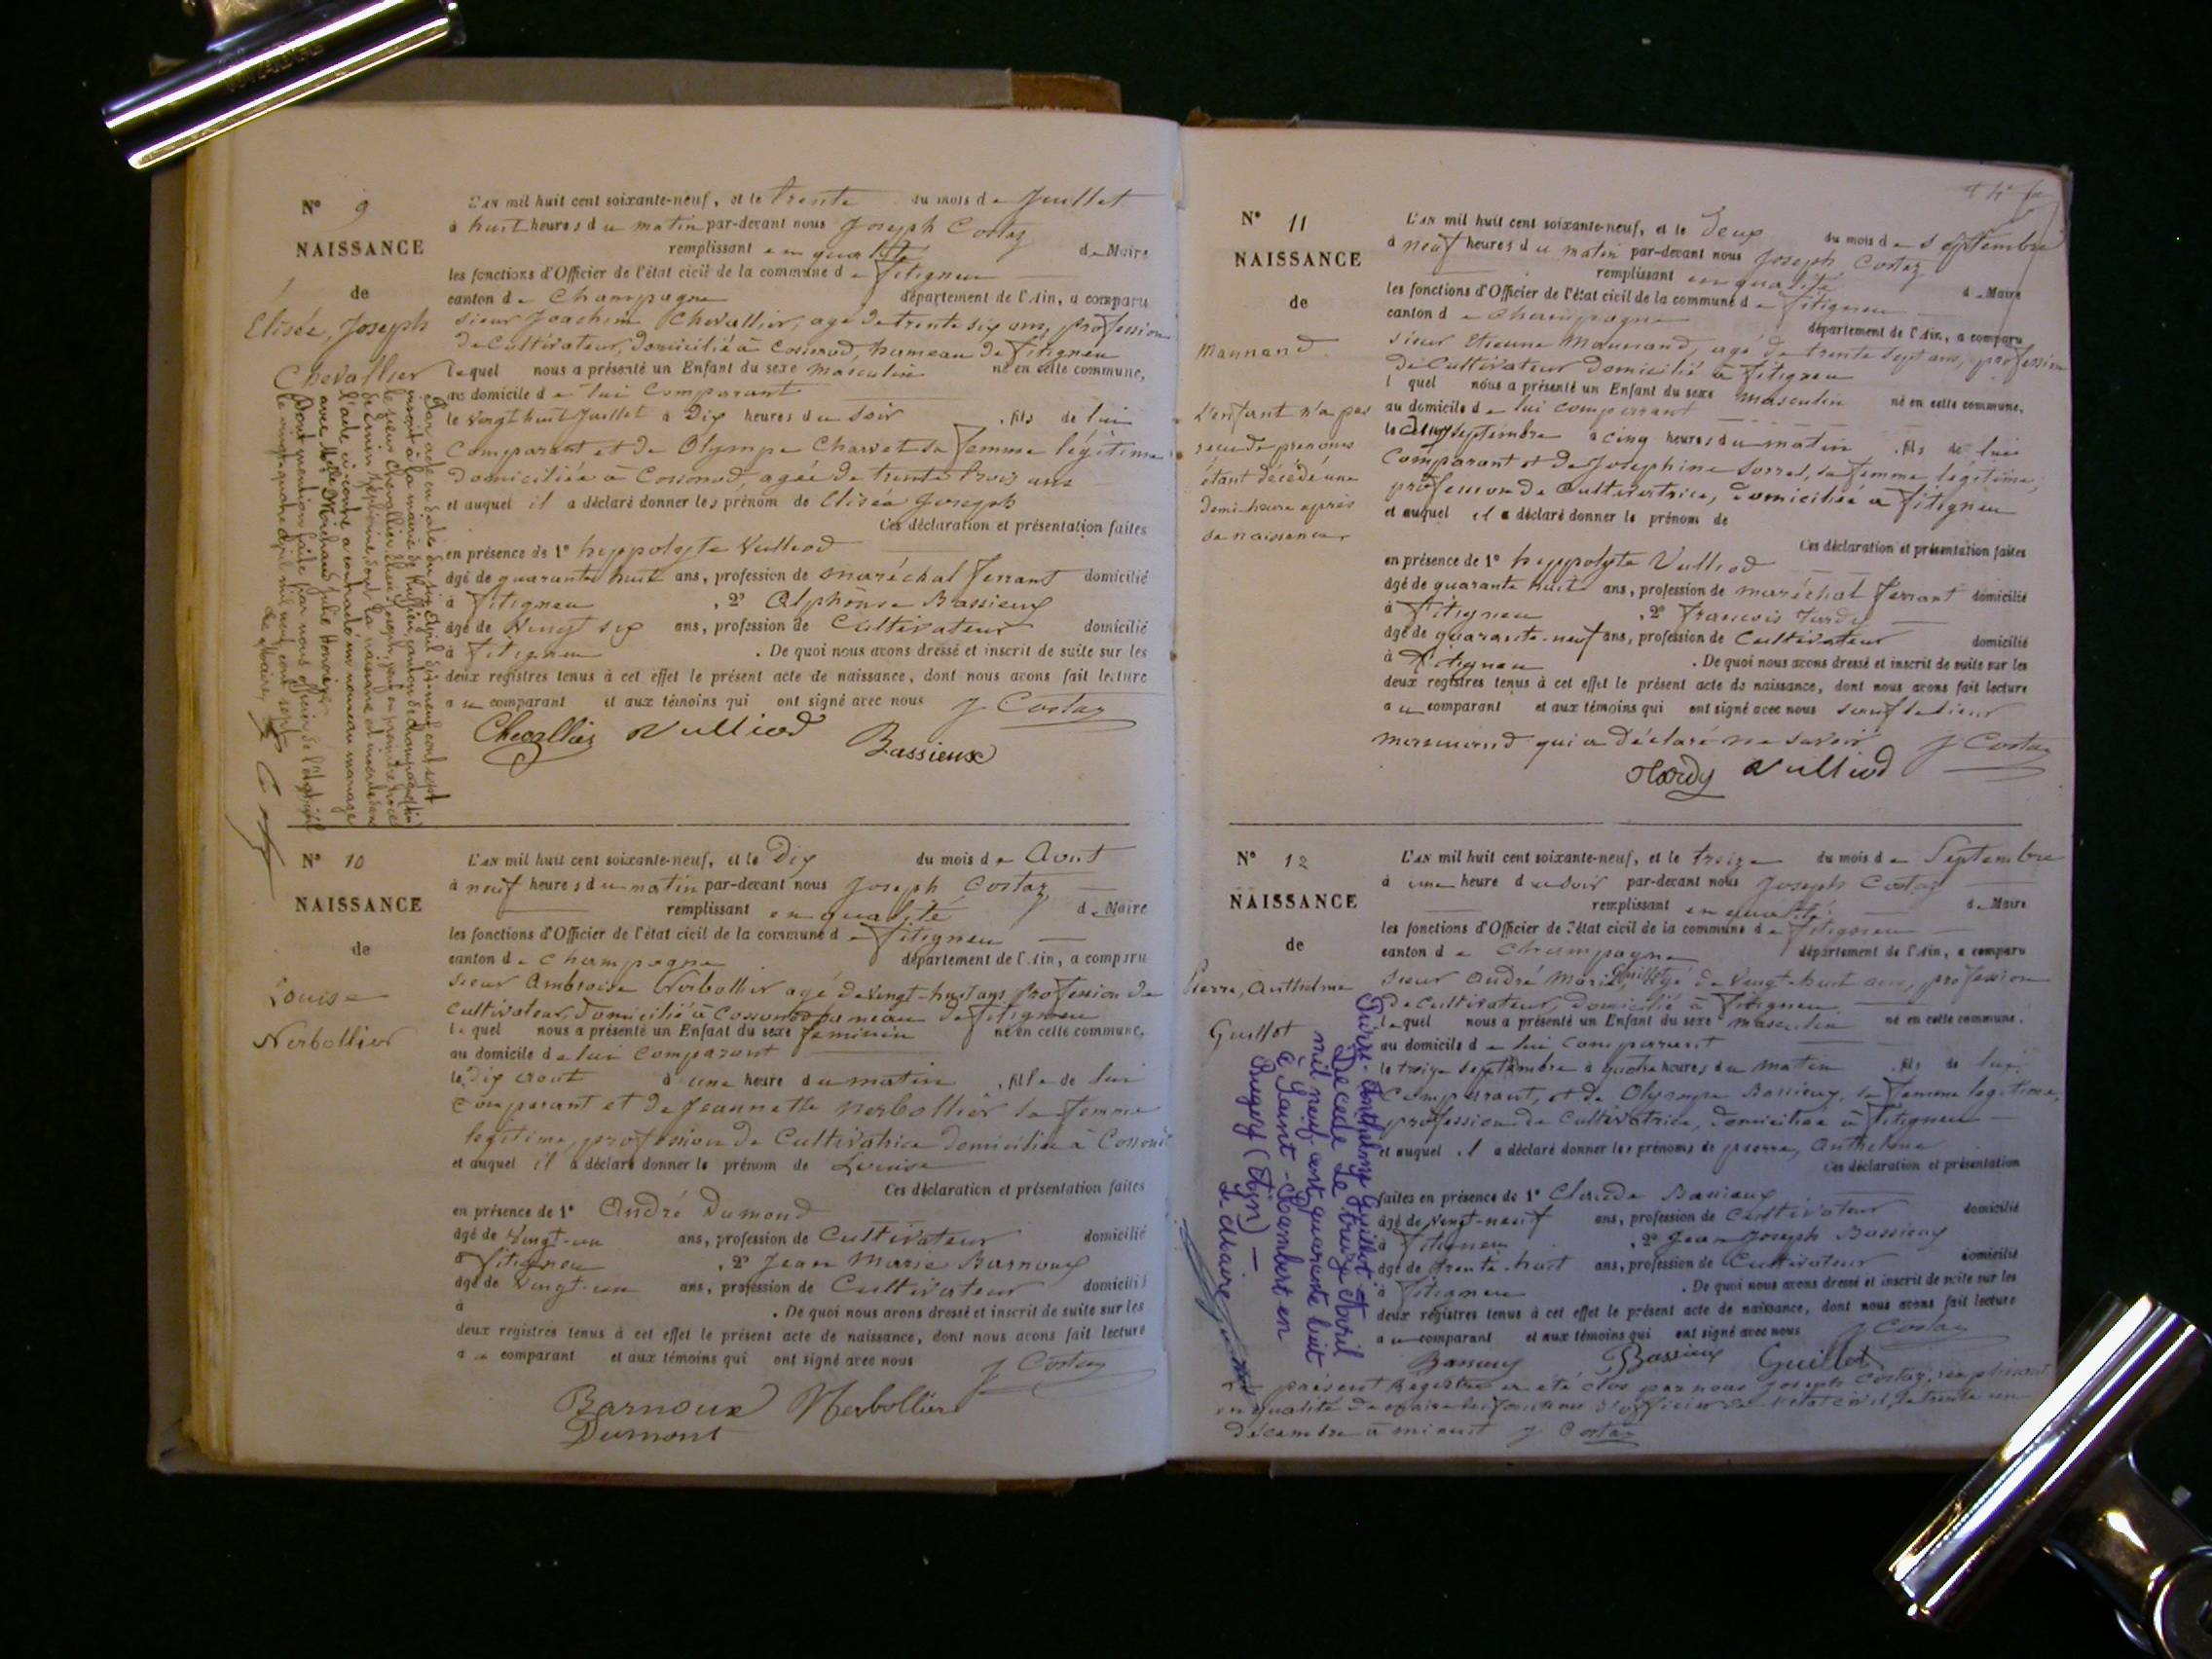 N° 9
NAISSANCE
de
Elisée, Joseph
Chevallier
L'AN mil huit cent soixante-neuf, et le trente du mois de Juillet
à huit heures du matin par-devant nous Joseph Costaz
remplissant en qualité de Maire
les fonctions d'Officier de l'état civil de la commune de fitigneu
canton de Champagne département de l'Ain, a comparu
sieur Joachim Chevallier, agé de trente six ans, profession
de Cultivateur, domicilié à Cossonod, hameau de fitigneu
lequel nous a présenté un Enfant du sexe masculin né en cette commune,
au domicile de lui Comparant
le vingt huit Juillet à Dix heures du soir , fils de lui
Comparant et de Olympe Charvet sa femme légitime
domiciliée à Cossonod, agée de trente trois ans
et auquel il a déclaré donner les prénom de Elisée Joseph
Ces déclaration et présentation faites
en présence de 1° hyppolyte Vulliod
âgé de quarante huit ans, profession de maréchal ferrant domicilié
à fitigneu , 2° Alphonse Bassieux
âgé de Vingt six ans, profession de Cultivateur domicilié
à fitigneu . De quoi nous avons dressé et inscrit de suite sur les
deux registres tenus à cet effet le présent acte de naissance, dont nous avons fait lecture
au comparant et aux témoins qui ont signé avec nous J Costaz
Chevallier Vulliod Bassieux
Par acte en date du six Avril dix-neuf cent sept
inscrit à la mairie de Ruffieu, canton de Champagne (Ain)
le sieur Chevallier Elisée Joseph, veuf en première noce
l'acte ci-contre a contracté un nouveau mariage
avec Melle Michaud Julie
Dont mention faite par nous officier de l'état civil
le vingt quatre Avril mil neuf cent sept
Le Maire,
N° 10
NAISSANCE
de
Louise
Nerbollier
L'AN mil huit cent soixante-neuf, et le Dix du mois de Aout
à neuf heures du matin par-devant nous Joseph Costaz
remplissant en qualité de Maire
les fonctions d'Officier de l'état civil de la commune de fitigneu
canton de Champagne département de l'Ain, a comparu
sieur Ambroise Nerbollier agé de vingt-huit ans profession de
Cultivateur, domicilié à Cossonod hameau de fitigneu
lequel nous a présenté un Enfant du sexe feminin né en cette commune,
au domicile de lui Comparant
le Dix aout à une heure du matin , fille de lui
Comparant et de Jeannette nerbollier sa femme
légitime, profession de Cultivatrice domiciliée à Cossonod
et auquel il a déclaré donner le prénom de Louise
Ces déclaration et présentation faites
en présence de 1° André Dumond
âgé de Vingt-un ans, profession de Cultivateur domicilié
à fitigneu , 2° Jean Marie Barnoux
âgé de Vingt-un ans, profession de Cultivateur domicilié
à . De quoi nous avons dressé et inscrit de suite sur les
deux registres tenus à cet effet le présent acte de naissance, dont nous avons fait lecture
au comparant et aux témoins qui ont signé avec nous J Costaz
Barnoux Nerbollier
Dumont
N° 11
NAISSANCE
de
L'enfant n'a pas
recu de prenoms
étant décédé une
demi-heure après
sa naissance
L'AN mil huit cent soixante-neuf, et le Deux du mois de septembre
à neuf heures du matin par-devant nous Joseph Costaz
remplissant en qualité de Maire
les fonctions d'Officier de l'état civil de la commune de fitigneu
canton de Champagne département de l'Ain, a comparu
sieur Etienne agé de trente sept ans, profession
de Cultivateur domicilié à fitigneu
lequel nous a présenté un Enfant du sexe masculin né en cette commune,
au domicile de lui comparant
le septembre à cinq heures du matin , fils de lui
Comparant et de Josephine Sorrel, sa femme légitime,
profession de Cultivatrice, domiciliée à fitigneu
et auquel il a déclaré donner le prénom de
Ces déclaration et présentation faites
en présence de 1° hyppolyte Vulliod
âgé de quarante huit ans, profession de maréchal ferrant domicilié
à fitigneu , 2° francois Tardy
âgé de quarante-neuf ans, profession de Cultivateur domicilié
à fitigneu . De quoi nous avons dressé et inscrit de suite sur les
deux registres tenus à cet effet le présent acte de naissance, dont nous avons fait lecture
au comparant et aux témoins qui ont signé avec nous sauf le sieur
qui a déclaré ne savoir J Costaz
Tardy Vulliod
N° 12
NAISSANCE
de
Pierre, Anthelme
Guillot
L'AN mil huit cent soixante-neuf, et le treize du mois de Septembre
à une heure du soir par-devant nous Joseph Costaz
remplissant en qualité de Maire
les fonctions d'Officier de l'état civil de la commune de fitigneu
canton de Champagne département de l'Ain, a comparu
sieur André Marie Guillot agé de vingt-huit ans, profession
de Cultivateur, domicilié à fitigneu
lequel nous a présenté un Enfant du sexe masculin né en cette commune.
au domicile de lui Comparant
le treize septembre à quatre heures du matin , fils de lui
Comparant, et de Olympe Bassieux, sa femme legitime,
profession de Cultivatrice, domiciliée à fitigneu
et auquel il a déclaré donner les prénoms de pierre, Anthelme
Ces déclaration et présentation
faites en présence de 1° Claude Bassieux
âgé de Vingt-neuf ans, profession de Cultivateur domicilié
à fitigneu , 2° Jean Joseph Bassieux
âgé de trente-huit ans, profession de Cultivateur domicilié
à fitigneu . De quoi nous avons dressé et inscrit de suite sur les
deux registres tenus à cet effet le présent acte de naissance, dont nous avons fait lecture
au comparant et aux témoins qui ont signé avec nous J Costaz
Bassieux Bassieux Guillot
Pierre-Anthelme Guillot
Décédé Le treize Avril
mil neuf cent quarante huit
à Saint-Rambert en
Bugey (Ain) —
Le Maire
Le présent Registre a été clos par nous Joseph Costaz, remplissant
en qualité de maire les fonctions d'officier de l'etat civil, le trente un
décembre à minuit J Costaz